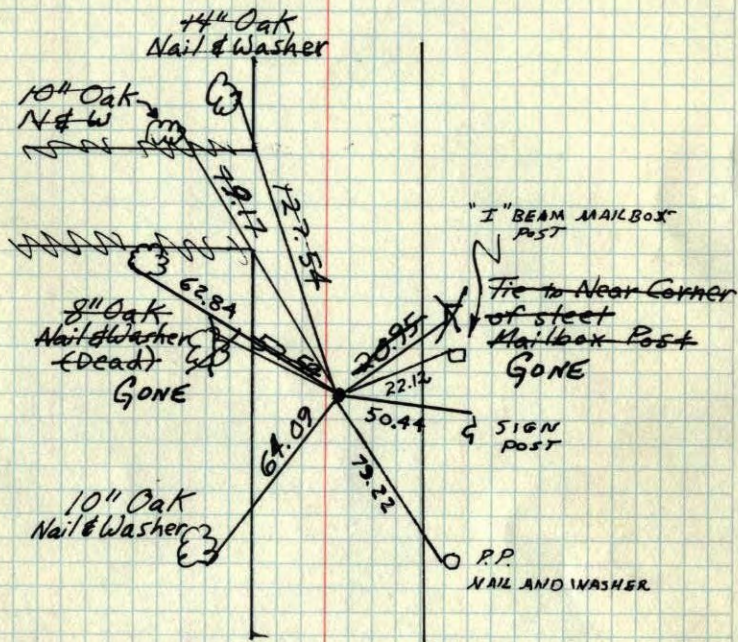 14" Oak
Nail & Washer
10" Oak
N & W
79.17
127.54
"I" BEAM MAILBOX
POST
62.84
Tie to Near Corner
of steel
Mailbox Post
GONE
20.95
8" Oak
Nail & Washer
(Dead)
GONE
22.12
50.44
SIGN
POST
64.09
79.22
10" Oak
Nail & Washer
P.P.
NAIL AND WASHER